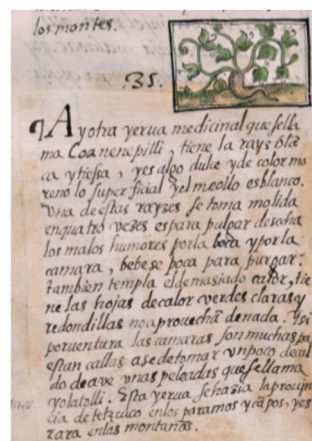 los montes.
.35.
¶ Ay otra yerua medicinal que se lla
ma Coanenepilli, tiene la rayz blā
ca y tiessa, y es algo dulce y de color mo
reno lo superficial y el meollo es blanco.
Una destas rayzes se toma molida
en quatro vezes es para purgar desecha
los malos humores por la boca y por la
camara, bebese poca para purgar:
tambien templa el demasiado calor, tie
ne las hojas de color verdes claras y
redondillas no aprovechā de nada. Y si
por ventura las camaras son muchas pa
estan callas a se de tomar vn poco de cal
do de ave vnas peleadas que se llama
yolatolli. Esta yerua se haze en la prouin
cia de tetzcuco en los paramos y cāpos, y es
rara en las montañas.